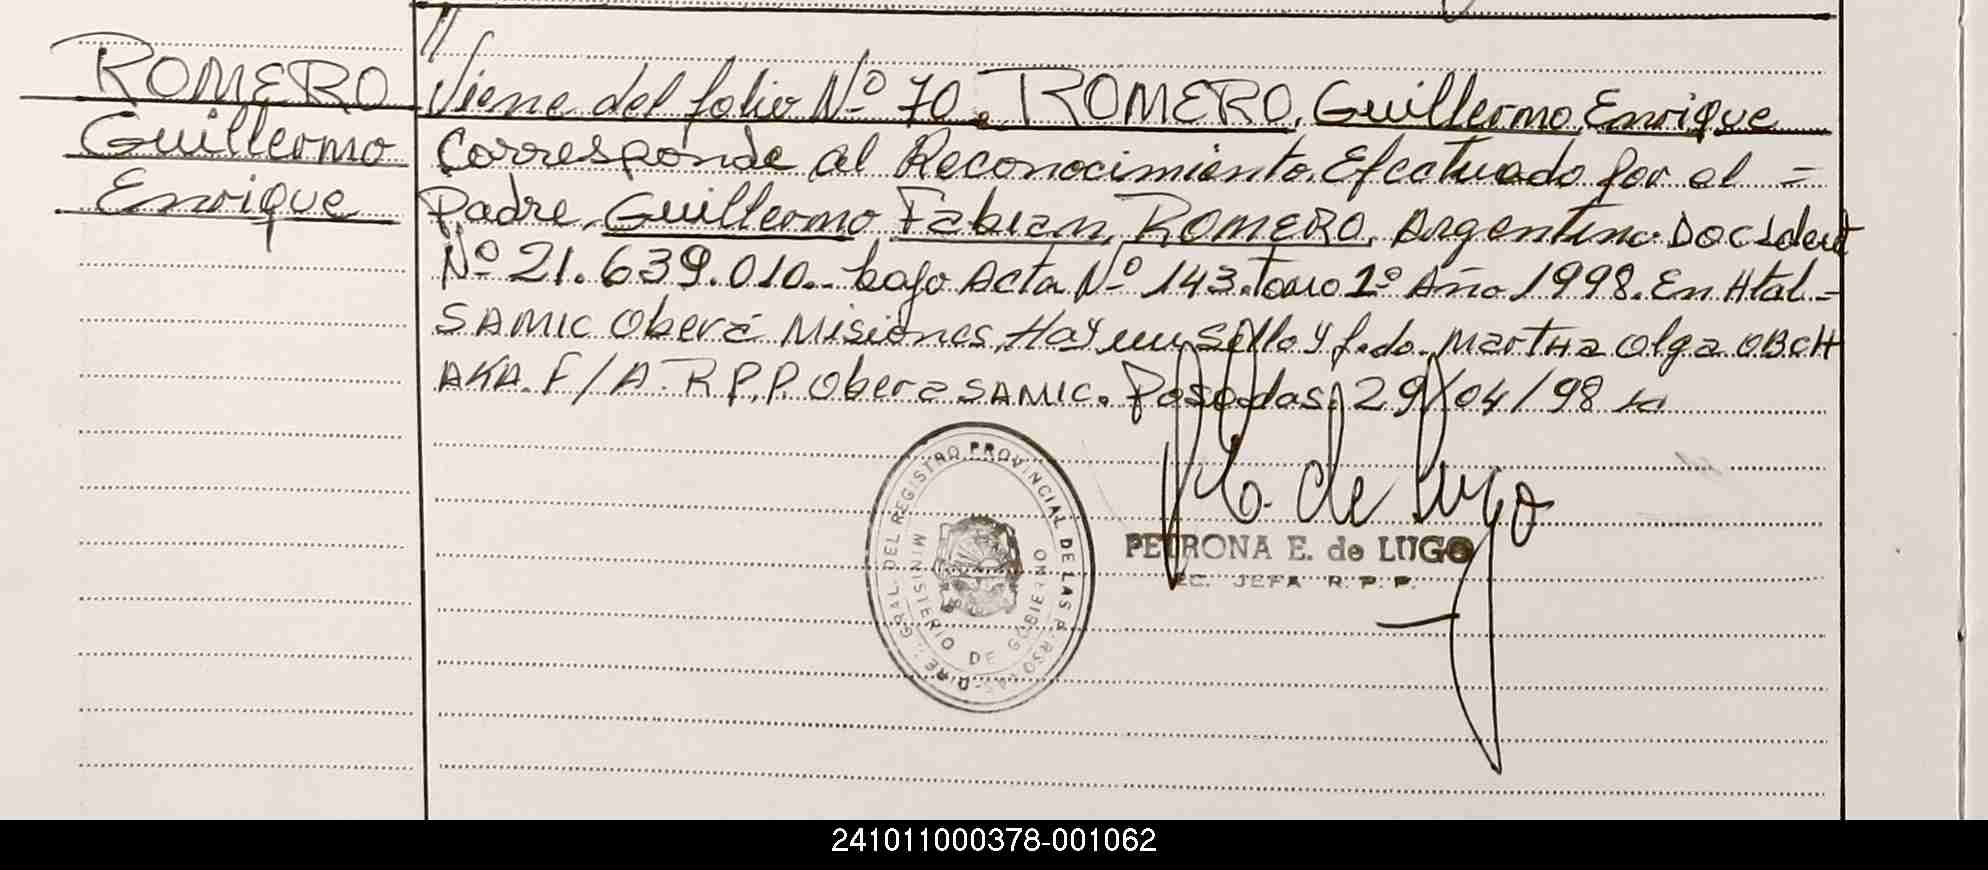 ROMERO
Guillermo
Enrique
//
Viene del folio Nº 70. ROMERO, Guillermo Enrique
Corresponde al Reconocimiento Efectuado por el =
Padre, Guillermo Fabian, ROMERO, Argentino Doc Ident
Nº 21.639.010.. bajo Acta Nº 143. Tomo 1º Año 1998. En Htal.=
SAMIC Oberá Misiones, Hay un Sello y fdo. Martha Olga OBCH
AKA. F/A. R.P.P. Obera SAMIC. Posadas, 29/04/98
DIREC. GRAL. DEL REGISTRO PROVINCIAL DE LAS PERSONAS
MINISTERIO DE GOBIERNO
de Lugo
PETRONA E. de LUGO
EC. JEFA R. P. P.
241011000378-001062